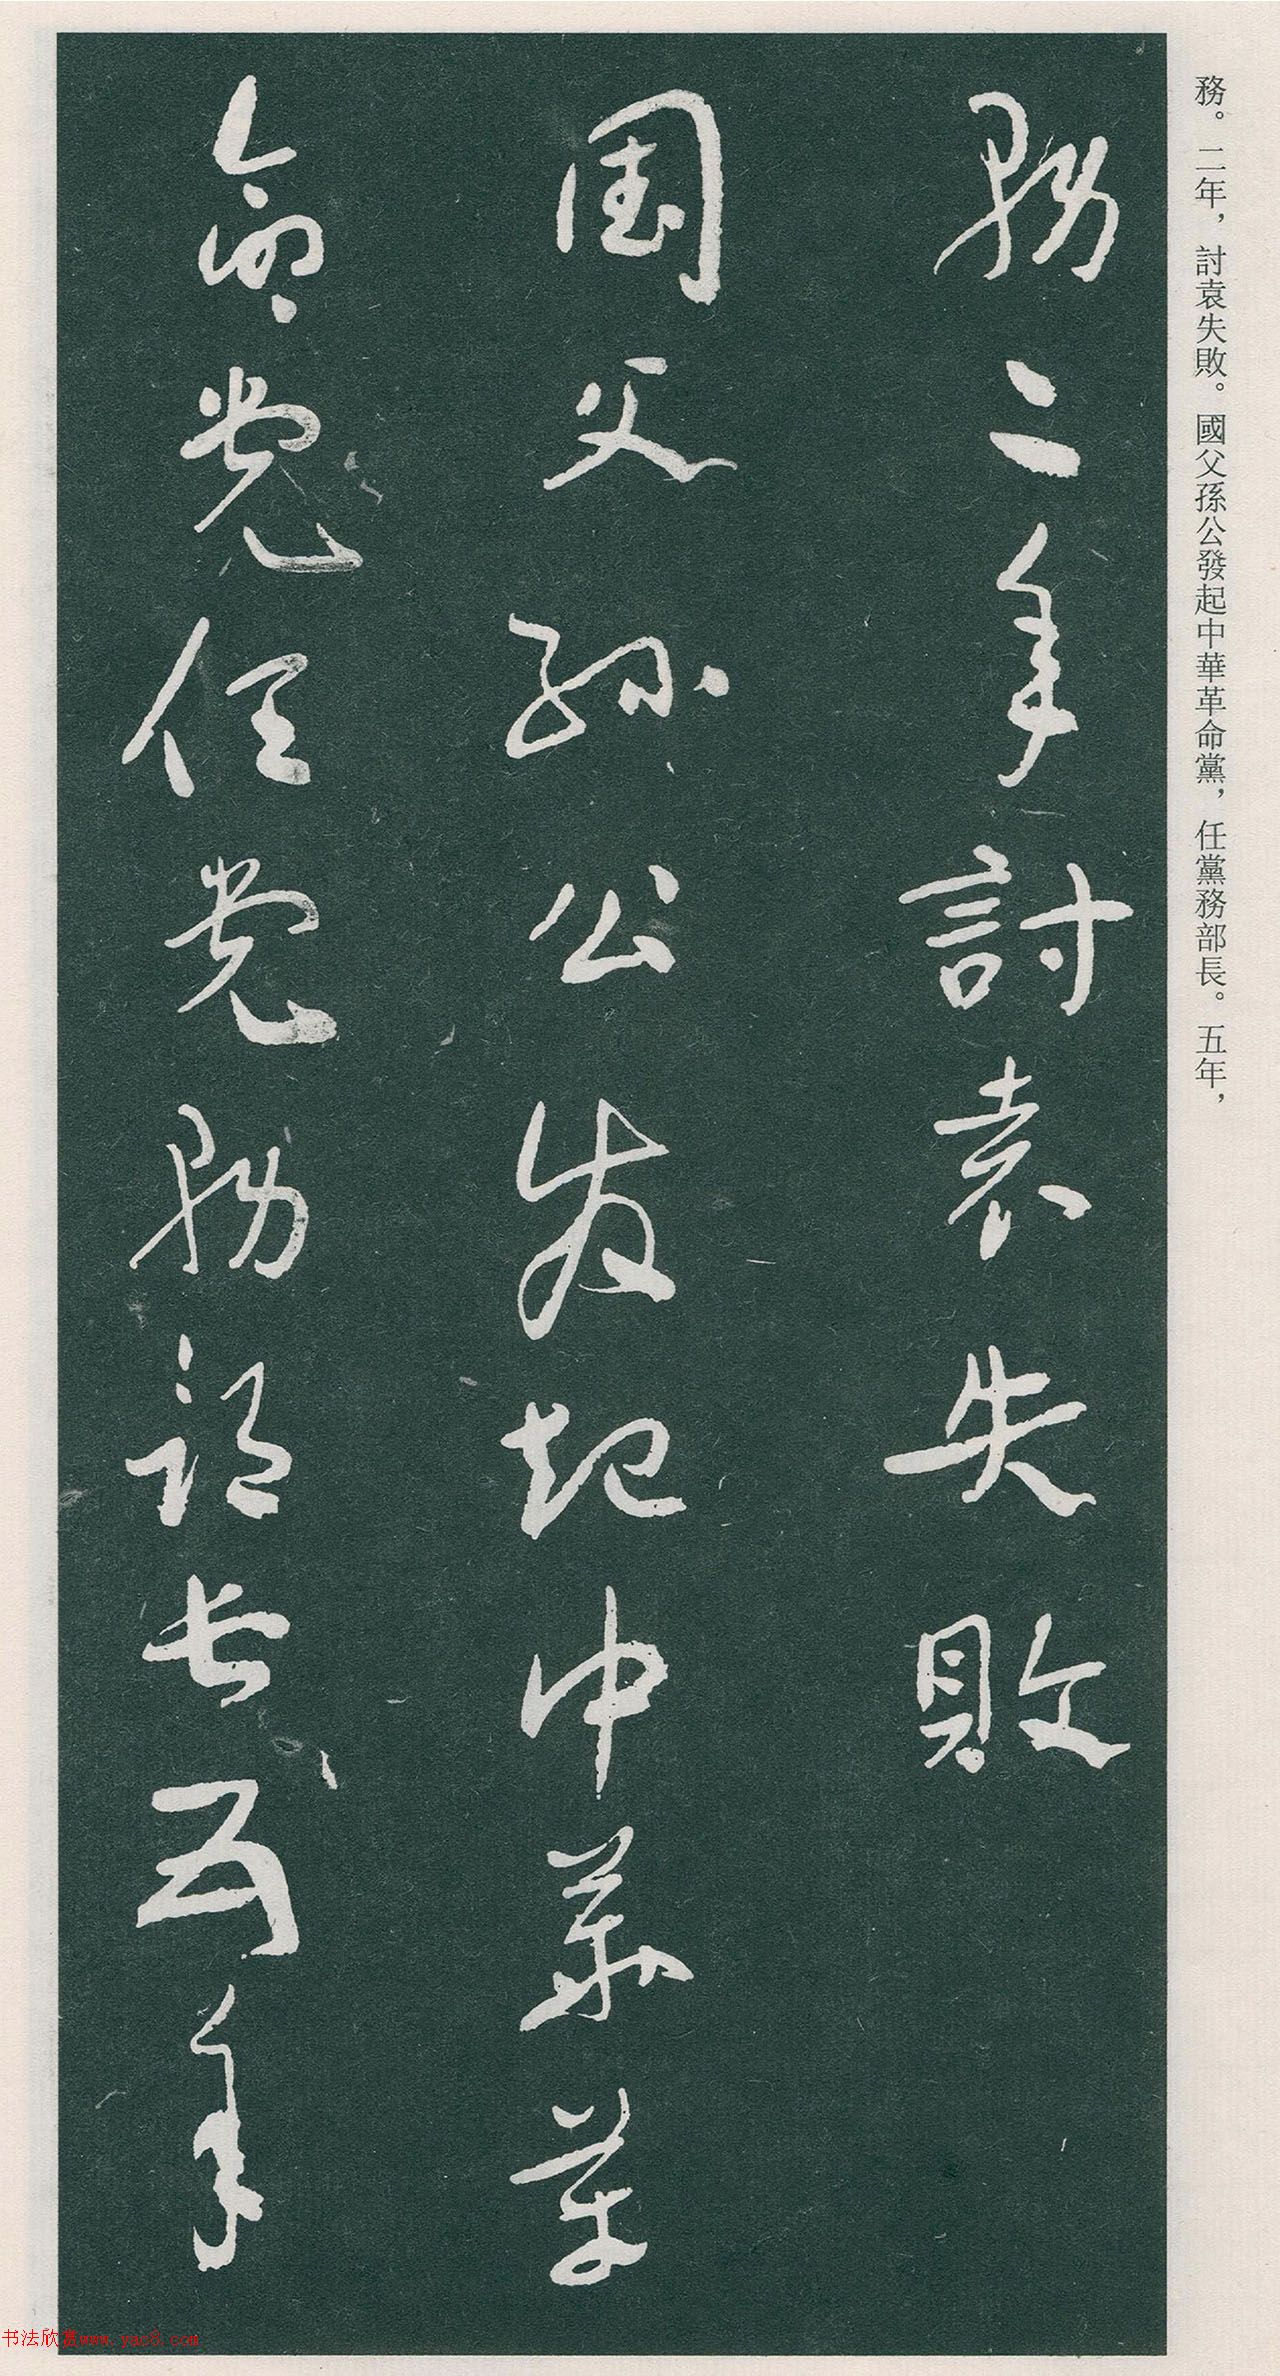 務。二年，討袁失敗。國父孫公發起中華革命黨，任黨務部長。五年，
務二年討袁失敗
國父孫公發起中華革
命黨任黨務部長五年
书法欣赏www.yac8.com